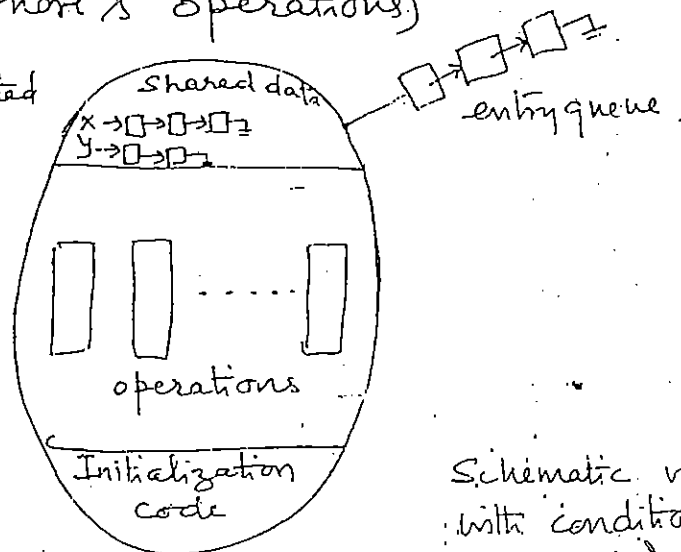 operations)
shared data
x
y
entry queue
operations
Initialization
code
Schematic
with